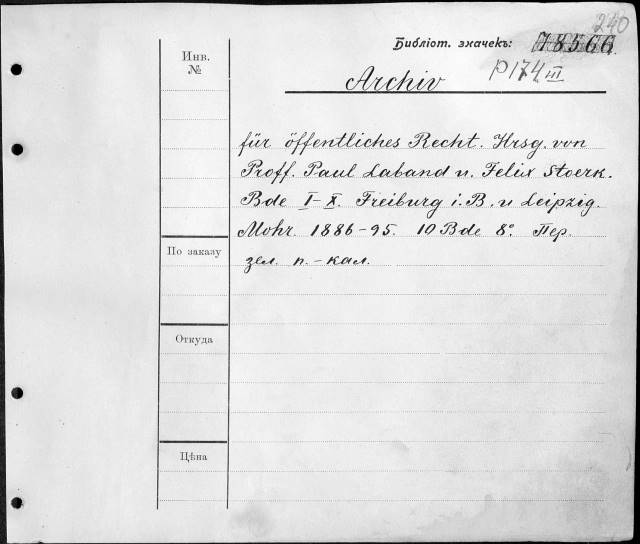 240
Библіот. значекъ: 78566
P174 III
Инв. №
Archiv
für öffentliches Recht. Hrsg. von
Proff. Paul Laband u. Felix Stoerk.
Bde I-X. Freiburg i. B. u. Leipzig.
Mohr. 1886-95. 10 Bde 8°. Пер.
зел. п.-кал.
По заказу
Откуда
Цѣна